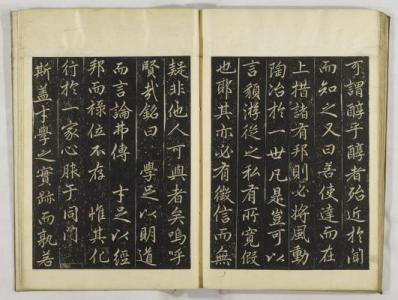 可謂醇乎醇者殆近於聞
而知之又曰善使達而在
上措諸有邦則必將風動
陶冶於一世凡是豈可以
言頴游從之私有所寬假
也耶其亦必有徵信而無
疑非他人可與者矣嗚乎
賢哉銘曰 學足以明道
而言論弗傳 才足以經
邦而祿位不存 惟其化
行於一家心服于同
斯蓋才學之實跡而孰若